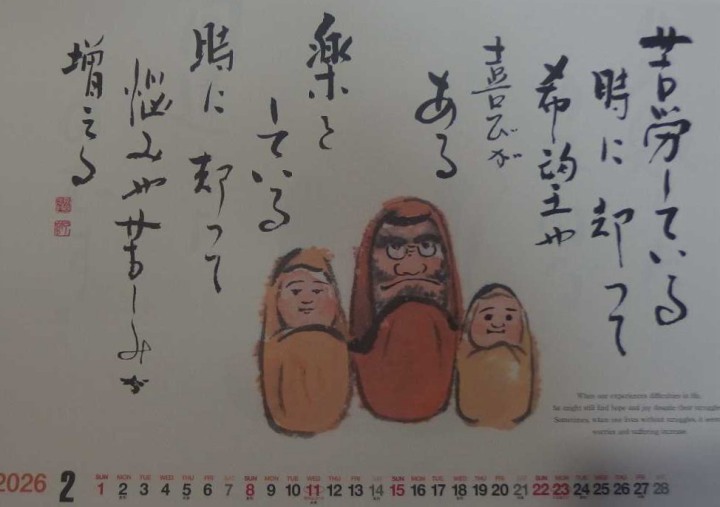 苦労している
時に却って
希望や
喜びが
ある
楽を
している
時に却って
悩みや苦しみが
増える
When one experiences difficulties in life,
he might still find hope and joy despite their struggles.
Sometimes, when one lives without struggles, it seems
worries and suffering increase.
2026 2
SUN MON TUE WED THU FRI SAT SUN MON TUE WED THU FRI SAT SUN MON TUE WED THU FRI SAT SUN MON TUE WED THU FRI SAT
1 2 3 4 5 6 7 8 9 10 11 12 13 14 15 16 17 18 19 20 21 22 23 24 25 26 27 28